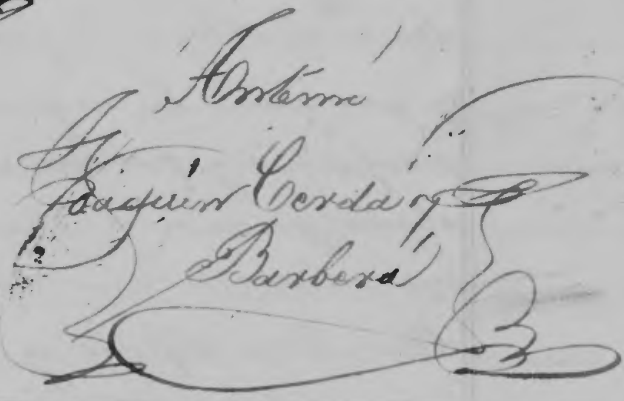 Ante mi
Joaquin Cerdá y
Barberá